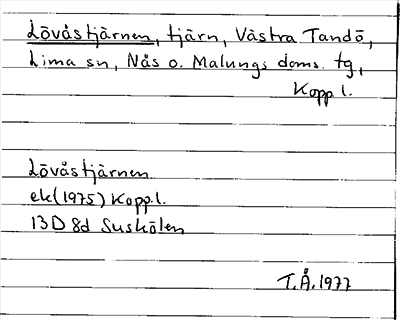 Lövåstjärnen, tjärn, Västra Tandö,
Lima sn, Nås o. Malungs doms. tg,
Kopp. l.
Lövåstjärnen
ek (1975) Kopp. l.
13D 8d Suskölen
T.Å. 1977